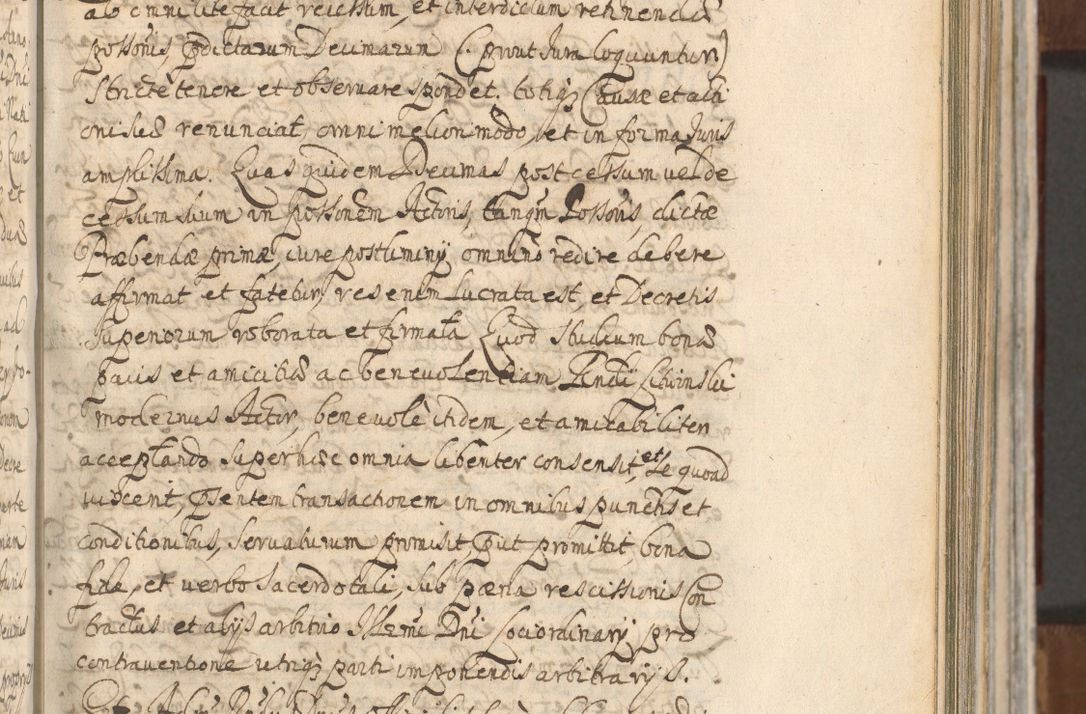 ab omni lite facit reiectum, et interdictum retinendæ
possonis, pdictarum Decimarum (prout Jura loquuntur)
stricté tenere et observare spondet. totiq3 Causæ et acti
oni suæ renunciat, omni meliori modo, et in forma Juris
amplissima. Quas quidem Decimas post cessum vel de
cessum suum in possonem Actoris, tanqm Possoris, dictæ
Præbendæ primæ, iure postliminij omnino redire debere
affirmat et fatetur, res enim lucrata est, et Decretis
Superiorum roborata et firmata Quod studium bonæ
pacis et amicitiæ ac benevolentiam Rndi
modernus Actor, benevolè itidem, et amicabiliter
acceptando super hisce omnia libenter consensit, et se quoad
vixerit, psentem transactionem in omnibus punctis et
conditionibus, servaturum promisit, put promittit, bona
fide, et verbo sacerdotali, sub pæna rescissionis Con
tractus et alijs arbitrio Illmi Dni Lociordinarij pro
contraventione utriq3 parti imponendis arbitrarijs.